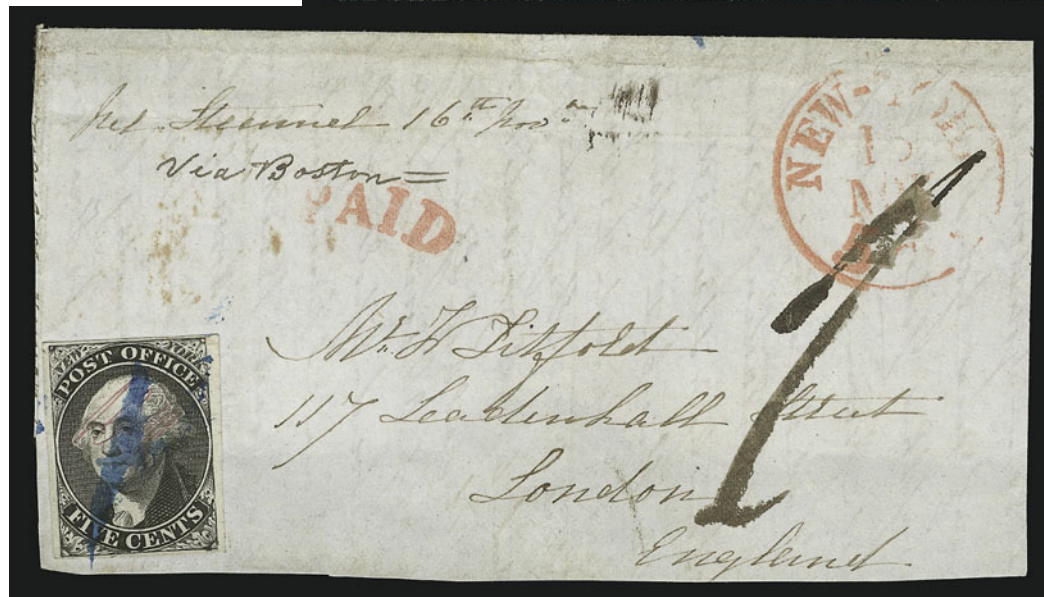 per Steamer 16th Nov
Via Boston=
PAID
NEW-YORK
15
NOV
5cts
1
Mr. W. Titfold
117 Leadenhall Street
London
England
NEW YORK
POST OFFICE
FIVE CENTS